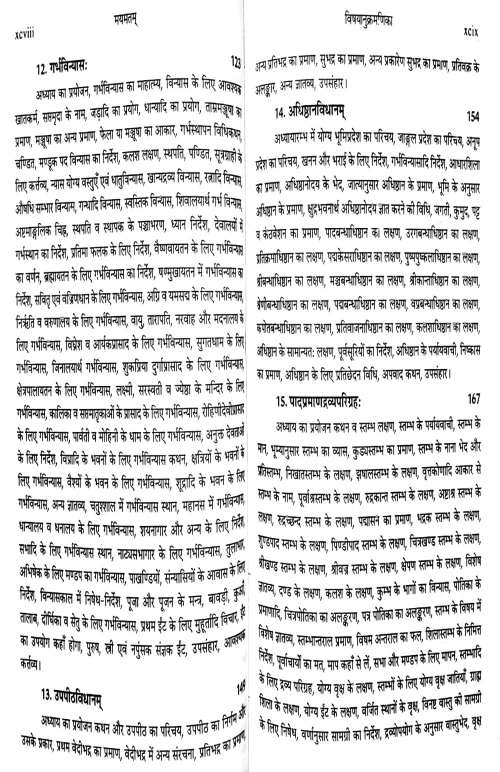 xcviii
मयमतम्
12. गर्भविन्यासः 123
अध्याय का प्रयोजन, गर्भविन्यास का माहात्म्य, विन्यास के लिए आवश्यक
खातकर्म, सप्तमृदा के नाम, जड़ादि का प्रयोग, धान्यादि का प्रयोग, ताम्रमञ्जूषा का
प्रमाण, मञ्जूषा का अन्य प्रमाण, फेला या मञ्जूषा का आकार, गर्भस्थापन विधिकथन,
चण्डित, मण्डूक पद विन्यास का निर्देश, कलश लक्षण, स्थपति, पण्डित, सूत्रग्राही के
लिए कर्त्तव्य, न्यास योग्य वस्तुएँ एवं धातुविन्यास, खान्यद्रव्य विन्यास, रत्नादि विन्यास,
औषधि सम्भार विन्याम, गन्धादि विन्यास, स्वस्तिक विन्यास, शिवालयार्थ गर्भ विन्यास,
अष्टमाङ्गलिक चिह्न, स्थपति व स्थापक के पञ्चाभरण, ध्यान निर्देश, देवालयों में
गर्भस्थान का निर्देश, प्रतिमा फलक के लिए निर्देश, वैष्णवायतन के लिए गर्भविन्यास
का वर्णन, ब्रह्मायतन के लिए गर्भविन्यास का निर्देश, षण्मुखायतन में गर्भविन्यास का
निर्देश, सवितृ एवं वज्रिणधान के लिए गर्भविन्यास, अग्नि व यमसद्म के लिए गर्भविन्यास,
निर्ऋति व वरुणालय के लिए गर्भविन्यास, वायु, तारापति, नरवाह और मदनालय के
लिए गर्भविन्यास, विघ्नेश व आर्यकप्रासाद के लिए गर्भविन्यास, सुगतधाम के लिए
गर्भविन्यास, जिनालयार्थ गर्भविन्यास, शुकप्रिया दुर्गाप्रासाद के लिए गर्भविन्यास,
क्षेत्रपालायतन के लिए गर्भविन्यास, लक्ष्मी, सरस्वती व ज्येष्ठा के मन्दिर के लिए
गर्भविन्यास, कालिका व सप्तमातृकाओं के प्रासाद के लिए गर्भविन्यास, रोहिणीदेवीप्रासाद
के लिए गर्भविन्यास, पार्वती व मोहिनी के धाम के लिए गर्भविन्यास, अनुक्त देवताओं
के लिए निर्देश, विप्रादि के भवनों के लिए गर्भविन्यास कथन, क्षत्रियों के भवनों के
लिए गर्भविन्यास, वैश्यों के भवन के लिए गर्भविन्यास, शूद्रादि के भवन के लिए
गर्भविन्यास, अन्य ज्ञातव्य, चतुश्शाल में गर्भविन्यास स्थान, महानस में गर्भविन्यास,
धान्यालय व धनालय के लिए गर्भविन्यास, शयनागार और अन्य के लिए निर्देश,
सभादि के लिए गर्भविन्यास स्थान, नाट्यसभागार के लिए गर्भविन्यास, तुलाभार,
अभिषेक के लिए मण्डप का गर्भविन्यास, पाखण्डियों, संन्यासियों के आवास के लिए
निर्देश, विन्यासकाल में निषेध-निर्देश, पूजा और पूजन के मन्त्र, बावड़ी, कुआँ,
तालाब, दीर्घिका व सेतु के लिए गर्भविन्यास, प्रथम ईंट के लिए मुहूर्तादि विचार, ईंट
का उपयोग कहाँ होगा, पुरुष, स्त्री एवं नपुंसक संज्ञक ईंट, उपसंहार, आवश्यक
कर्त्तव्य।
13. उपपीठविधानम् 149
अध्याय का प्रयोजन कथन और उपपीठ का परिचय, उपपीठ का निर्गम और
उसके प्रकार, प्रथम वेदीभद्र का प्रमाण, वेदीभद्र में अन्य संरचना, प्रतिभद्र का प्रमाण,
विषयानुक्रमणिका
xcix
अन्य प्रतिभद्र का प्रमाण, सुभद्र का प्रमाण, अन्य प्रकारेण सुभद्र का प्रमाण, प्रतिवक्त्र के
अलङ्कार, अन्य ज्ञातव्य, उपसंहार।
14. अधिष्ठानविधानम् 154
अध्यायारम्भ में योग्य भूमिप्रदेश का परिचय, जाङ्गल प्रदेश का परिचय, अनूप
प्रदेश का परिचय, खनन और भराई के लिए निर्देश, गर्भविन्यासादि निर्देश, आधारशिला
का प्रमाण, अधिष्ठानोदय के भेद, जात्यानुसार अधिष्ठान के प्रमाण, भूमि के अनुसार
अधिष्ठान के प्रमाण, क्षुद्रभवनार्थ अधिष्ठानोदय ज्ञात करने की विधि, जगती, कुमुद, पट्ट
व कंठवेशन का प्रमाण, पादबन्धाधिष्ठान का लक्षण, उरगबन्धाधिष्ठान का लक्षण,
प्रतिक्रमाधिष्ठान का लक्षण, पद्मकेसराधिष्ठान का लक्षण, पुष्पपुष्कलाधिष्ठान का लक्षण,
श्रीबन्धाधिष्ठान का लक्षण, मञ्चबन्धाधिष्ठान का लक्षण, श्रीकान्ताधिष्ठान का लक्षण,
श्रेणीबन्धाधिष्ठान का लक्षण, पद्मबन्धाधिष्ठान का लक्षण, वप्रबन्धाधिष्ठान का लक्षण,
कपोतबन्धाधिष्ठान का लक्षण, प्रतिवाजनाधिष्ठान का लक्षण, कलशाधिष्ठान का लक्षण,
अधिष्ठान के सामान्यत: लक्षण, पूर्वसूरियों का निर्देश, अधिष्ठान के पर्यायवाची, निष्कास
का प्रमाण, अधिष्ठान के लिए प्रतिछेदन विधि, अपवाद कथन, उपसंहार।
15. पादप्रमाणद्रव्यपरिग्रहः 167
अध्याय का प्रयोजन कथन व स्तम्भ लक्षण, स्तम्भ के पर्यायवाची, स्तम्भ के
मान, भूम्यानुसार स्तम्भ का व्यास, कुड्यस्तम्भ का प्रमाण, स्तम्भ के नाना भेद और
प्रतिस्तम्भ, निखातस्तम्भ के लक्षण, झषालस्तम्भ के लक्षण, वृत्तकोणादि आकार से
स्तम्भ के नाम, पूर्वाश्रस्तम्भ के लक्षण, रुद्रकान्त स्तम्भ के लक्षण, अष्टाश्र स्तम्भ के
लक्षण, रुद्रच्छन्द स्तम्भ के लक्षण, पद्मासन का प्रमाण, भद्रक स्तम्भ के लक्षण,
शुण्डपाद स्तम्भ के लक्षण, पिण्डीपाद स्तम्भ के लक्षण, चित्रखण्ड स्तम्भ के लक्षण,
श्रीखण्ड स्तम्भ के लक्षण, श्रीवज्र स्तम्भ के लक्षण, क्षेपण स्तम्भ के लक्षण, विशेष
ज्ञातव्य, दण्ड के लक्षण, कलश के लक्षण, कुम्भ के भागों का विन्यास, पोतिका के
प्रमाणादि, चित्रपोतिका का अलङ्करण, पत्र पोतिका का अलङ्करण, स्तम्भ के विषय में
विशेष ज्ञातव्य, स्तम्भान्तराल प्रमाण, विषम अन्तराल का फल, शिलास्तम्भ के निमित्त
निर्देश, पूर्वाचार्यों का मत, माप कहाँ से लें, सभा और मण्डप के लिए मापन, स्तम्भादि
के लिए द्रव्य परिग्रह, योग्य वृक्ष के लक्षण, स्तम्भों के लिए योग्य वृक्ष जातियाँ, ग्राह्य
शिला के लक्षण, योग्य ईंट के लक्षण, वर्जित स्थानों के वृक्ष, विनष्ट वास्तु की सामग्री
के लिए निषेध, वर्णानुसार सामग्री का निर्देश, द्रव्योपयोग के अनुसार वास्तुभेद, वृक्ष